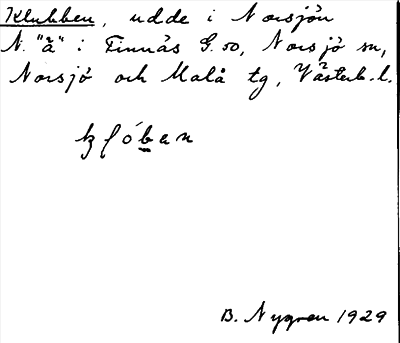 Klubben, udde i Norsjön
N. "å" i Finnås G. 50, Norsjö sn,
Norsjö och Malå tg, Västerb. l.
kḷóban
B. Nygren 1929